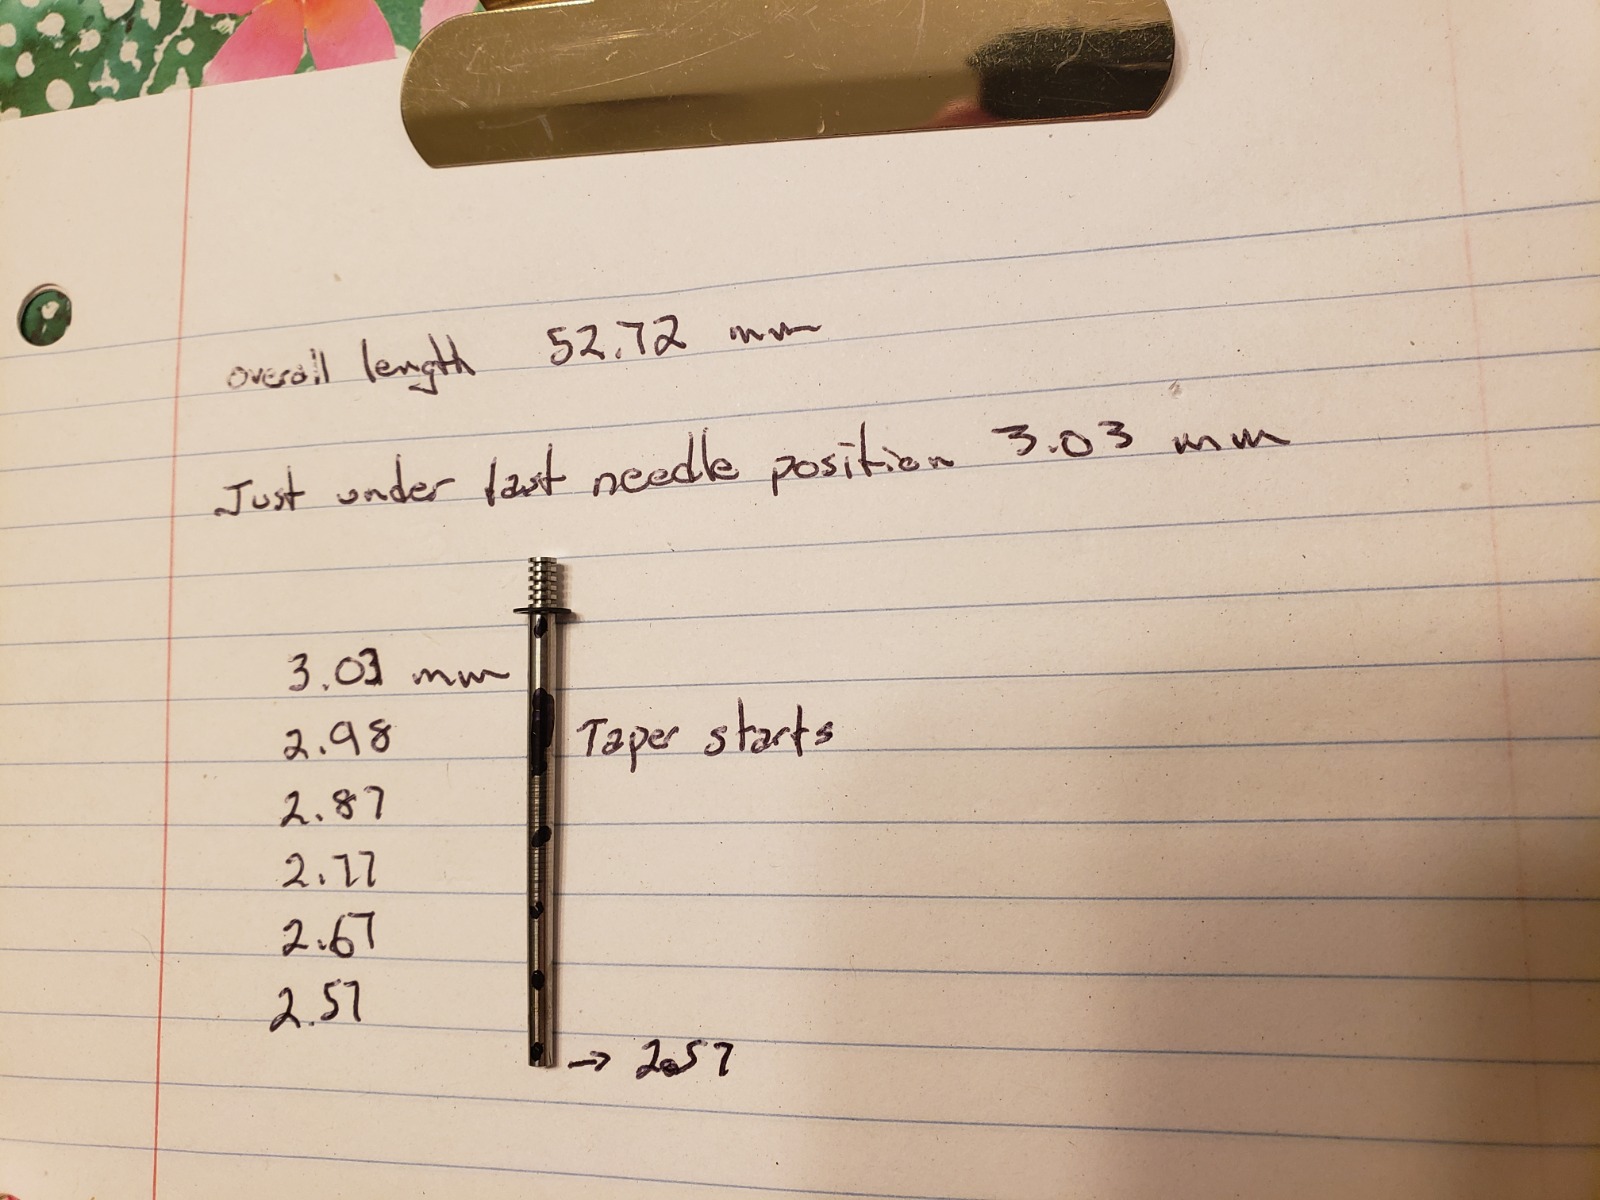 overall length 52.72 mm
Just under last needle position 3.03 mm
3.03 mm
2.98 Taper starts
2.87
2.77
2.67
2.57
→ 2.57